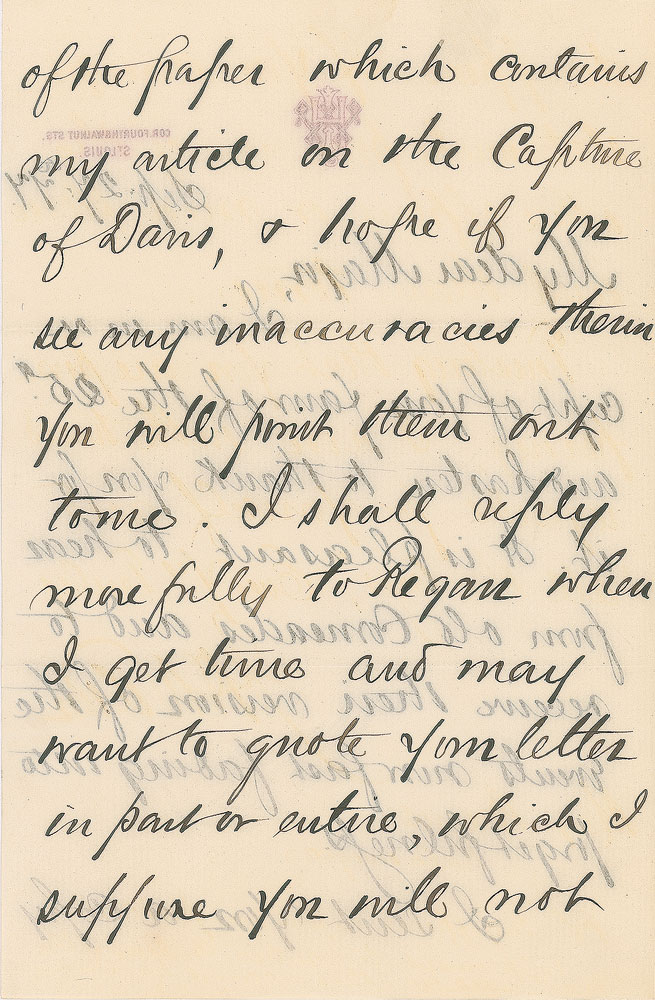 of the paper which contains
my article on the Capture
of Davis, & hope if you
see any inaccuracies therin
you will point them out
to me. I shall reply
more fully to Regan when
I get time and may
want to quote your letter
in part or entire, which I
suppose you will not